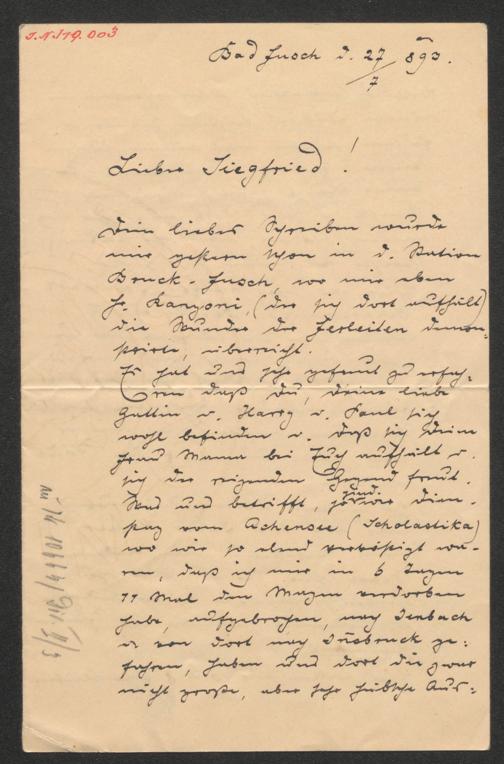 I.N. 179.003
Bad Fusch d. 27/7 893.
Lieber Siegfried!
Dein liebes Schreiben wurde
mir gestern schon in d. Station
Bruck-Fusch, wo mir eben
Hr. Kanzoni, (der sich dort aufhält)
die Wunder der Ferleiten demon-
strirte, überreicht.
Es hat uns sehr gefreut zu erfah-
ren daß Du, Deine liebe
Gattin u. Harry u. Paul sich
wohl befinden u. daß sich Deine
Frau Mama bei Euch aufhält u.
sich der reizenden Gegend freut.
Was uns betrifft, so sind wir Diens-
tag vom Achensee (Scholastika)
wo wir so elend verköstigt wa-
ren, daß ich mir in 6 Tagen
11 Mal den Magen verdorben
habe, aufgebrochen, nach Jenbach
u. von dort nach Insbruck ge-
fahren, haben uns dort die zwar
nicht große, aber sehr hübsche Aus-